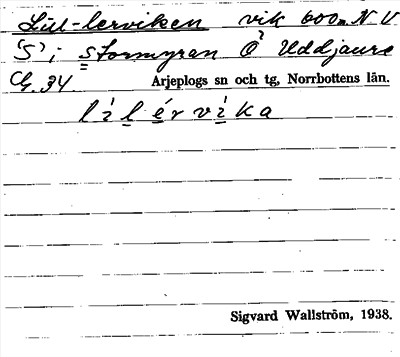 Lill-lerviken vik 600m NV
"S" i Stormyran Ö Uddjaure
Arjeplogs sn och tg, Norrbottens län.
lìlérvìka
Sigvard Wallström, 1938.